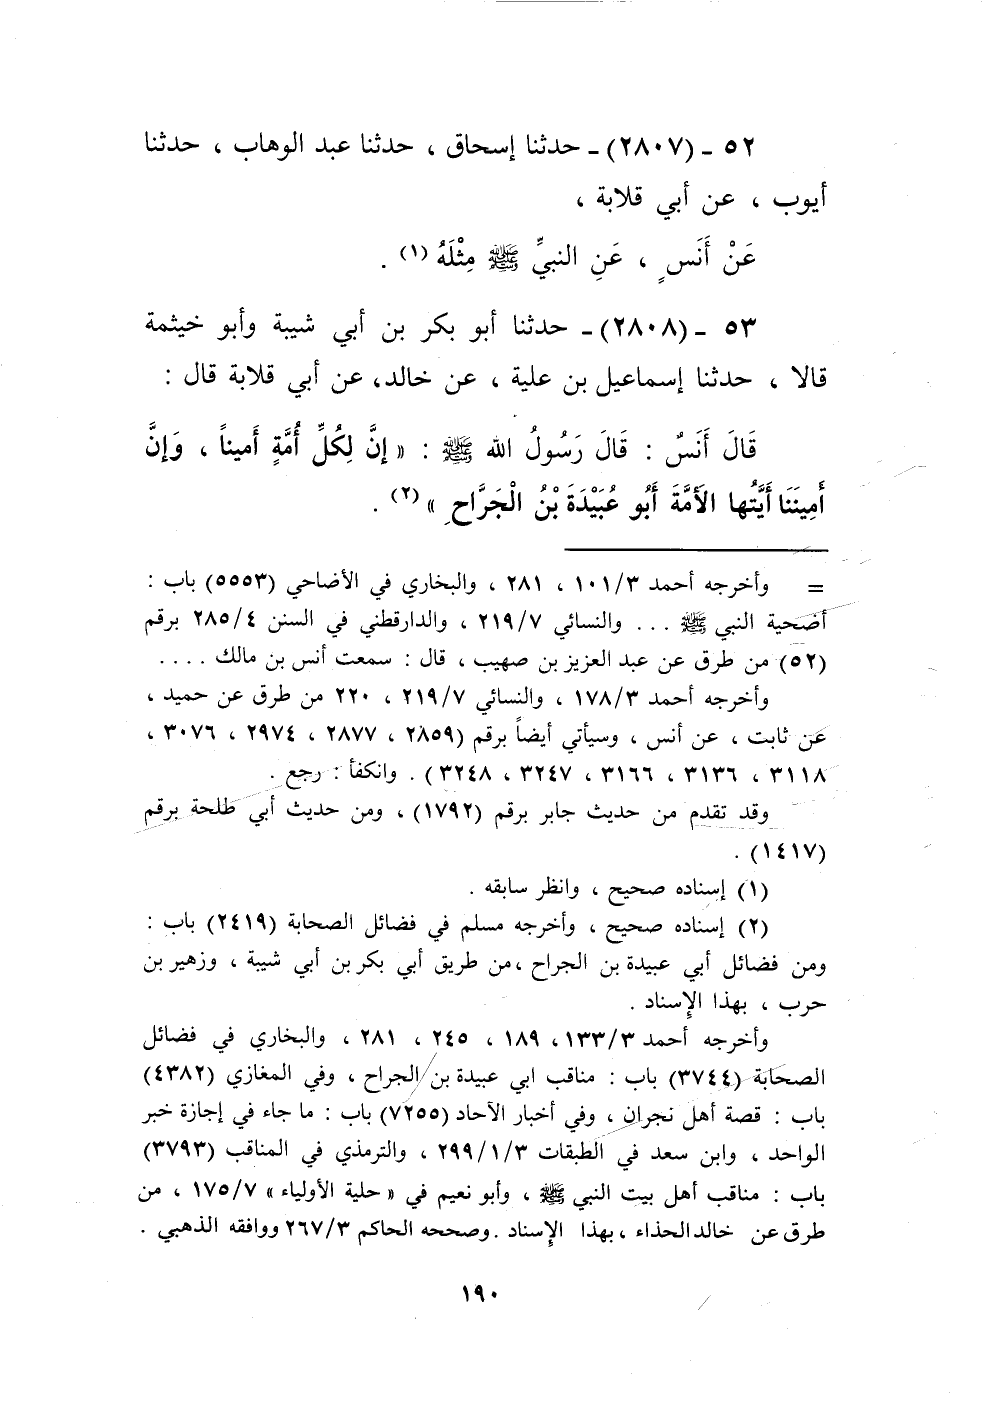 ٥٢ ـ (٢٨٠٧) ـ حدثنا إسحاق ، حدثنا عبد الوهاب ، حدثنا
أيوب ، عن أبي قلابة ،
عَنْ أَنَسٍ ، عَنِ النبيِّ ﷺ مِثْلَهُ (١) .
٥٣ ـ (٢٨٠٨) ـ حدثنا أبو بكر بن أبي شيبة وأبو خيثمة
قالا ، حدثنا إسماعيل بن علية ، عن خالد، عن أبي قلابة قال :
قَالَ أَنَسٌ : قَالَ رَسُولُ الله ﷺ : « إنَّ لِكُلِّ أُمَّةٍ أَميناً ، وَإنَّ
أَمِينَنَا أَيَّتُها الأَمَّةَ أَبُو عُبَيْدَةَ بْنُ الْجَرَّاحِ » (٢) .
= وأخرجه أحمد ١٠١/٣ ، ٢٨١ ، والبخاري في الأضاحي (٥٥٥٣) باب :
أضحية النبي ﷺ ... والنسائي ٢١٩/٧ ، والدارقطني في السنن ٢٨٥/٤ برقم
(٥٢) من طرق عن عبد العزيز بن صهيب ، قال : سمعت أنس بن مالك ....
وأخرجه أحمد ١٧٨/٣ ، والنسائي ٢١٩/٧ ، ٢٢٠ من طرق عن حميد ،
عن ثابت ، عن أنس ، وسيأتي أيضاً برقم (٢٨٥٩ ، ٢٨٧٧ ، ٢٩٧٤ ، ٣٠٧٦ ،
٣١١٨ ، ٣١٣٦ ، ٣١٦٦ ، ٣٢٤٧ ، ٣٢٤٨) . وانكفأ : رجع .
وقد تقدم من حديث جابر برقم (١٧٩٢) ، ومن حديث أبي طلحة برقم
(١٤١٧) .
(١) إسناده صحيح ، وانظر سابقه .
(٢) إسناده صحيح ، وأخرجه مسلم في فضائل الصحابة (٢٤١٩) باب :
ومن فضائل أبي عبيدة بن الجراح ،من طريق أبي بكر بن أبي شيبة ، وزهير بن
حرب ، بهذا الإسناد .
وأخرجه أحمد ١٣٣/٣، ١٨٩ ، ٢٤٥ ، ٢٨١ ، والبخاري في فضائل
الصحابة (٣٧٤٤) باب : مناقب ابي عبيدة بن الجراح ، وفي المغازي (٤٣٨٢)
باب : قصة أهل نجران ، وفي أخبار الآحاد (٧٢٥٥) باب : ما جاء في إجازة خبر
الواحد ، وابن سعد في الطبقات ٢٩٩/١/٣ ، والترمذي في المناقب (٣٧٩٣)
باب : مناقب أهل بيت النبي ﷺ ، وأبو نعيم في « حلية الأولياء » ١٧٥/٧ ، من
طرق عن خالد الحذاء ، بهذا الإسناد . وصححه الحاكم ٢٦٧/٣ ووافقه الذهبي .
١٩٠